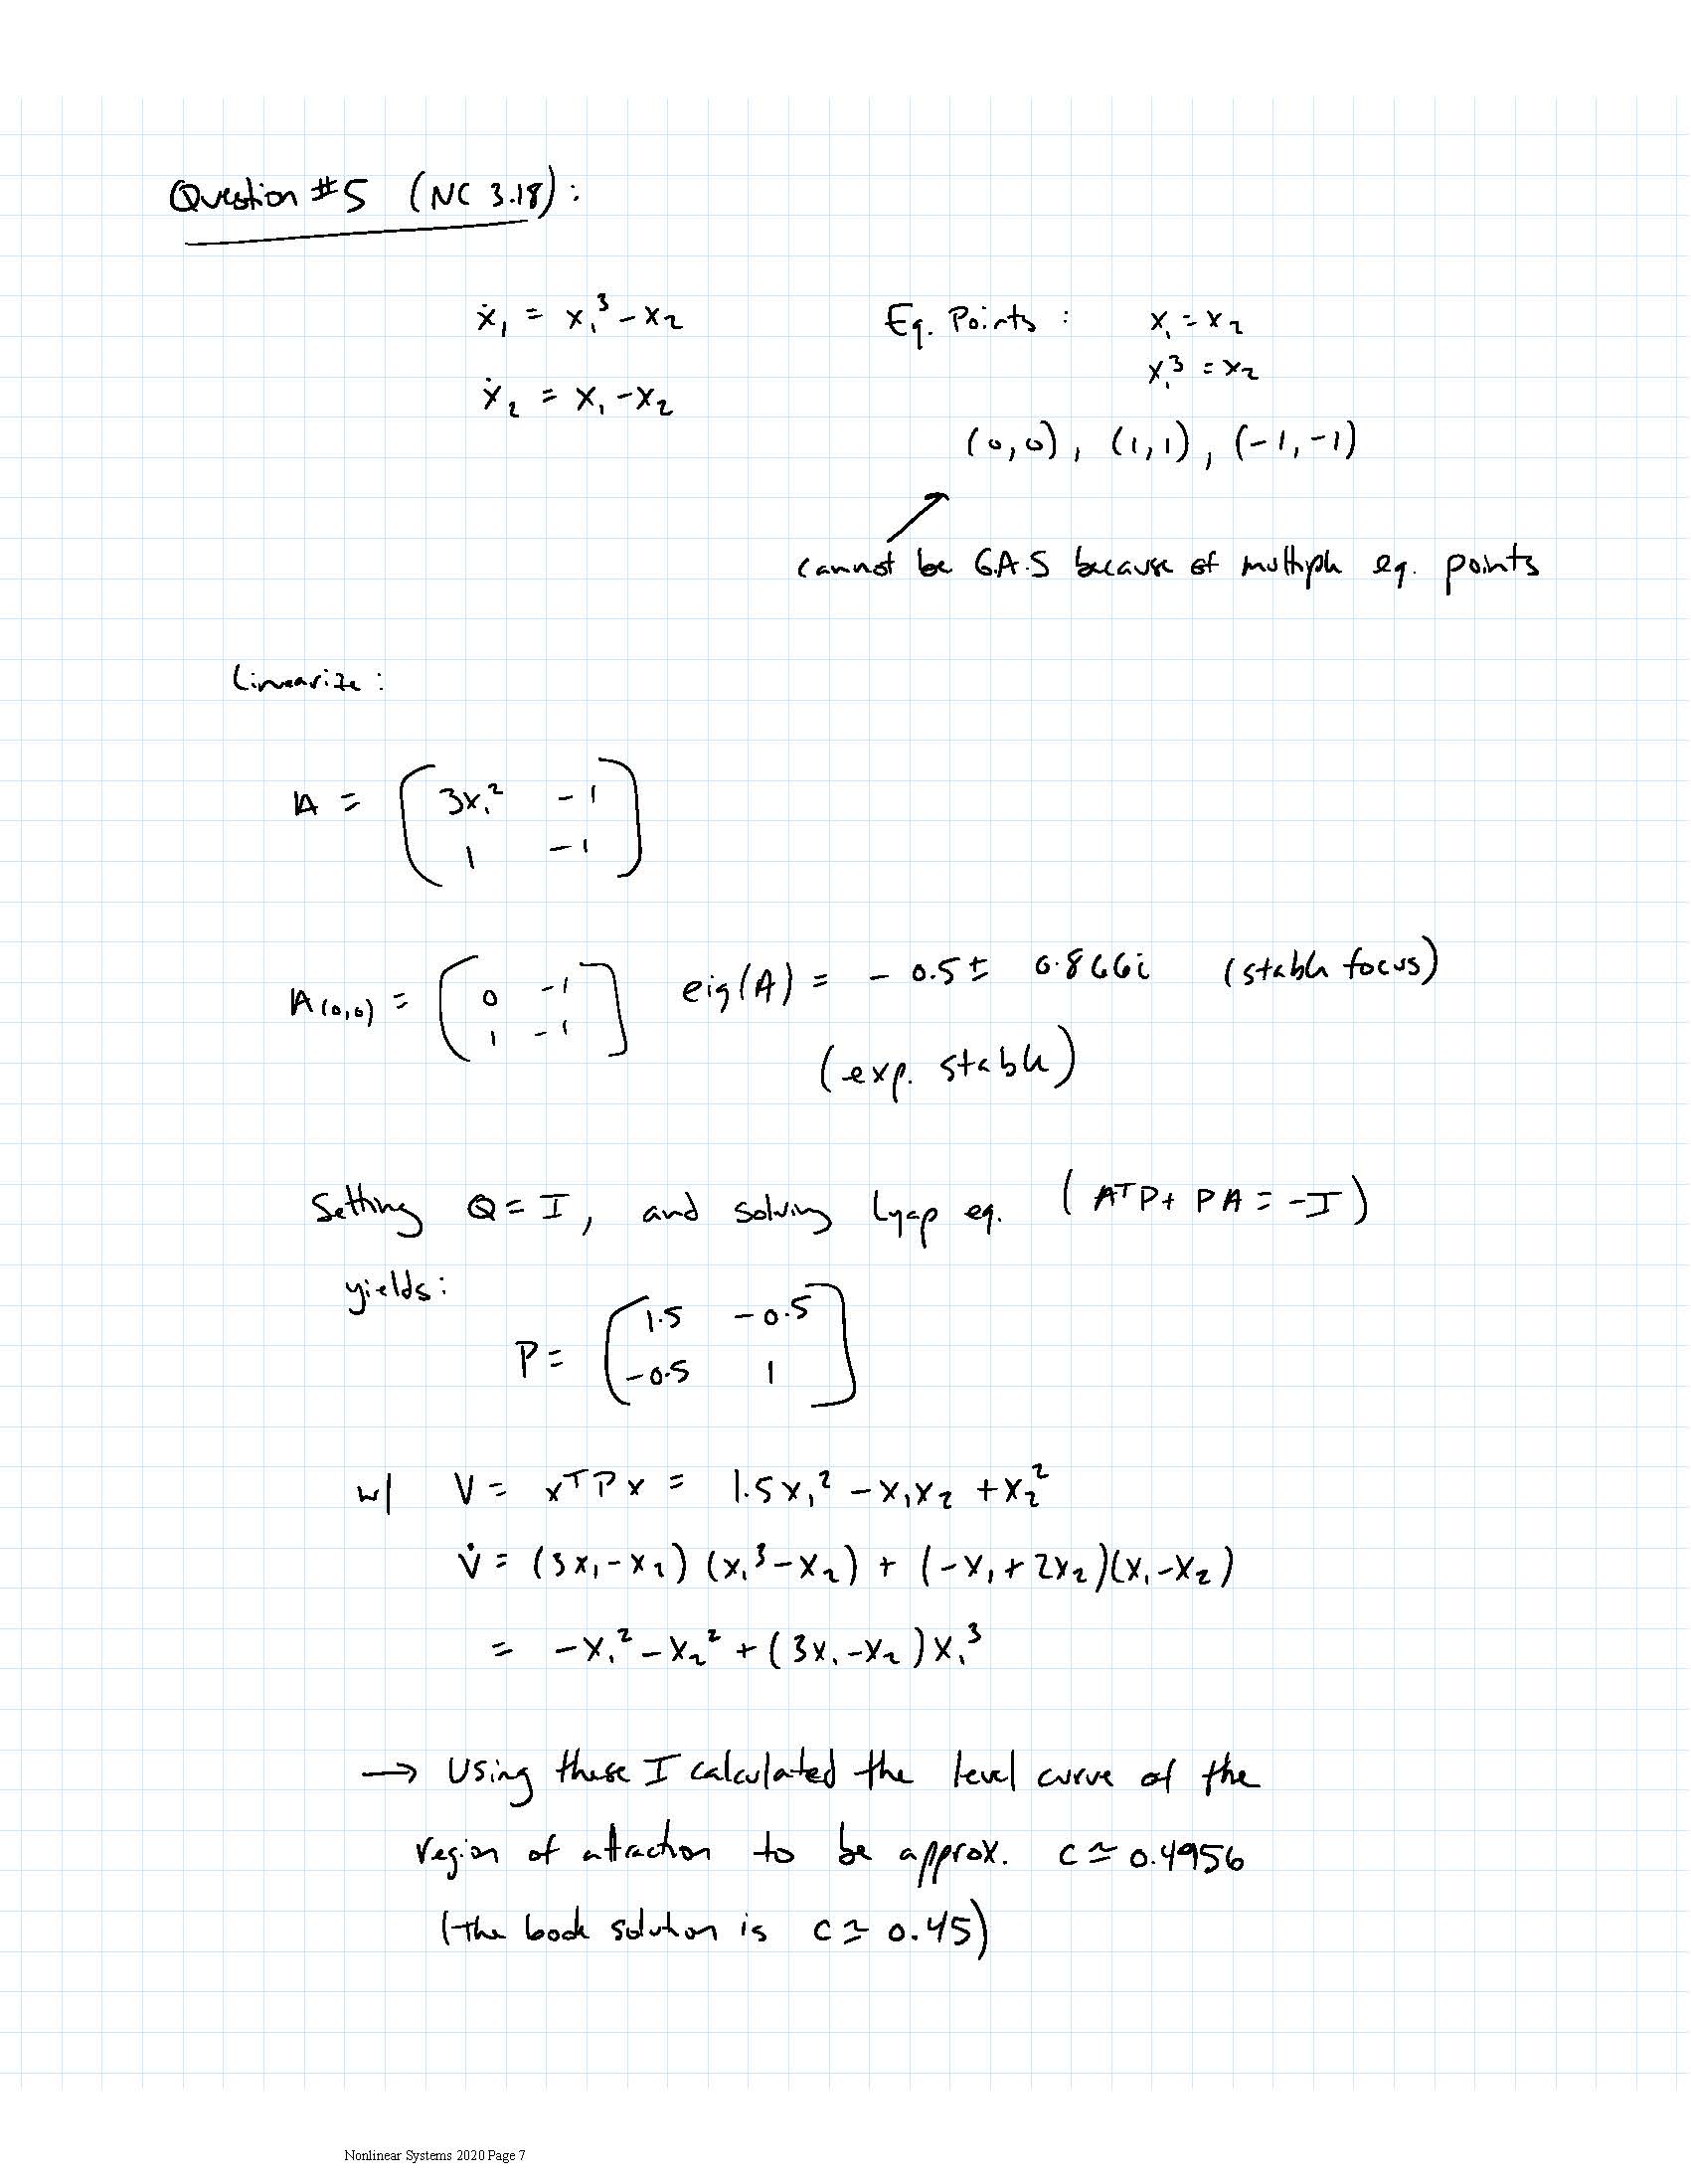 Question #5 (NC 3.18):
ẋ₁ = x₁³ - x₂
Eq. Points : x₁ = x₂
x₁³ = x₂
ẋ₂ = x₁ - x₂
(0,0), (1,1), (-1,-1)
cannot be G.A.S because of multiple eq. points
Linearize:
A = [3x₁² -1
1 -1]
A(0,0) = [0 -1
1 -1] eig(A) = -0.5 ± 0.866i (stable focus)
(exp. stable)
Setting Q = I, and solving Lyap eq. (AᵀP + PA = -I)
yields:
P = [1.5 -0.5
-0.5 1]
w/ V = xᵀPx = 1.5x₁² - x₁x₂ + x₂²
V̇ = (3x₁ - x₂)(x₁³ - x₂) + (-x₁ + 2x₂)(x₁ - x₂)
= -x₁² - x₂² + (3x₁ - x₂)x₁³
→ Using these I calculated the level curve of the
region of attraction to be approx. c ≃ 0.4956
(the book solution is c ≃ 0.45)
Nonlinear Systems 2020 Page 7